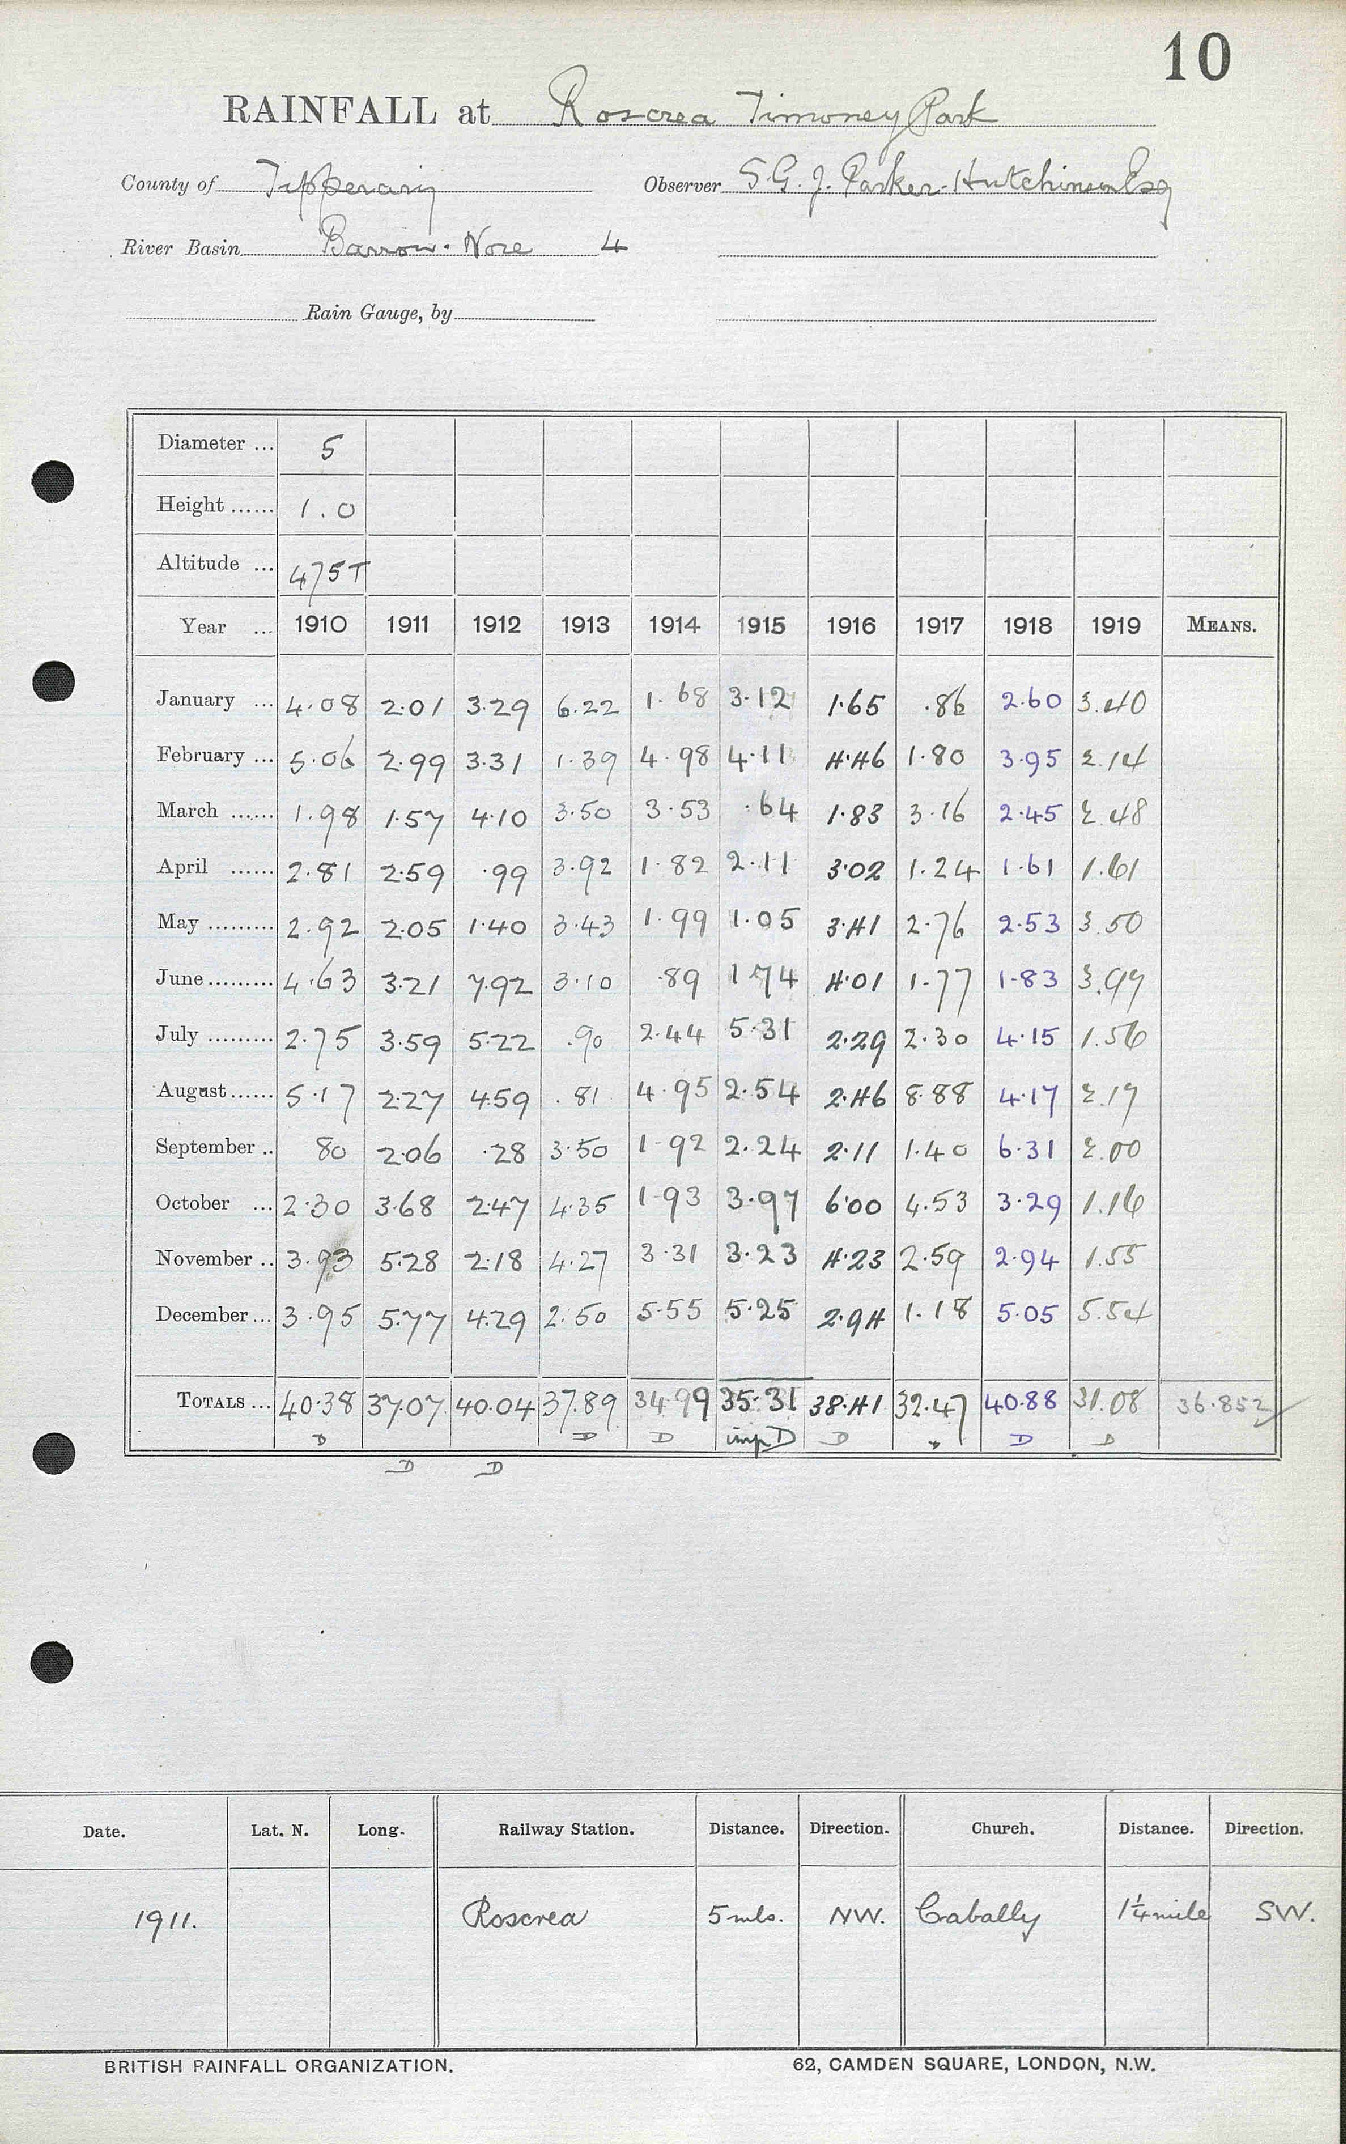 10
RAINFALL at Roscrea Timoney Park
County of Tipperary Observer S. G. J. Parker-Hutchinson Esq
River Basin Barrow-Nore 4
Rain Gauge, by
Diameter ... 5
Height ...... 1.0
Altitude ... 475T
Year ... 1910 1911 1912 1913 1914 1915 1916 1917 1918 1919 MEANS.
January ... 4.08 2.01 3.29 6.22 1.68 3.12 1.65 .86 2.60 3.40
February ... 5.06 2.99 3.31 1.39 4.98 4.11 4.46 1.80 3.95 2.14
March ...... 1.98 1.57 4.10 3.50 3.53 .64 1.83 3.16 2.45 2.48
April ...... 2.81 2.59 .99 3.92 1.82 2.11 3.02 1.24 1.61 1.61
May ......... 2.92 2.05 1.40 3.43 1.99 1.05 3.41 2.76 2.53 3.50
June ......... 4.63 3.21 7.92 3.10 .89 1.74 4.01 1.77 1.83 3.99
July ......... 2.75 3.59 5.22 .90 2.44 5.31 2.29 2.30 4.15 1.56
August ...... 5.17 2.27 4.59 .81 4.95 2.54 2.46 8.88 4.17 2.17
September .. 80 2.06 .28 3.50 1.92 2.24 2.11 1.40 6.31 2.00
October ... 2.30 3.68 2.47 4.35 1.93 3.97 6.00 4.53 3.29 1.16
November .. 3.93 5.28 2.18 4.27 3.31 3.23 4.23 2.59 2.94 1.53
December ... 3.95 5.77 4.29 2.50 5.55 5.25 2.94 1.18 5.05 5.54
TOTALS ... 40.38 37.07 40.04 37.89 34.99 35.31 38.41 32.47 40.88 31.08 36.852
D D D imp D D D D
D D
Date. Lat. N. Long. Railway Station. Distance. Direction. Church. Distance. Direction.
1911. Roscrea 5 mls. NW. Cabally 1¼ mile SW.
BRITISH RAINFALL ORGANIZATION. 62, CAMDEN SQUARE, LONDON, N.W.